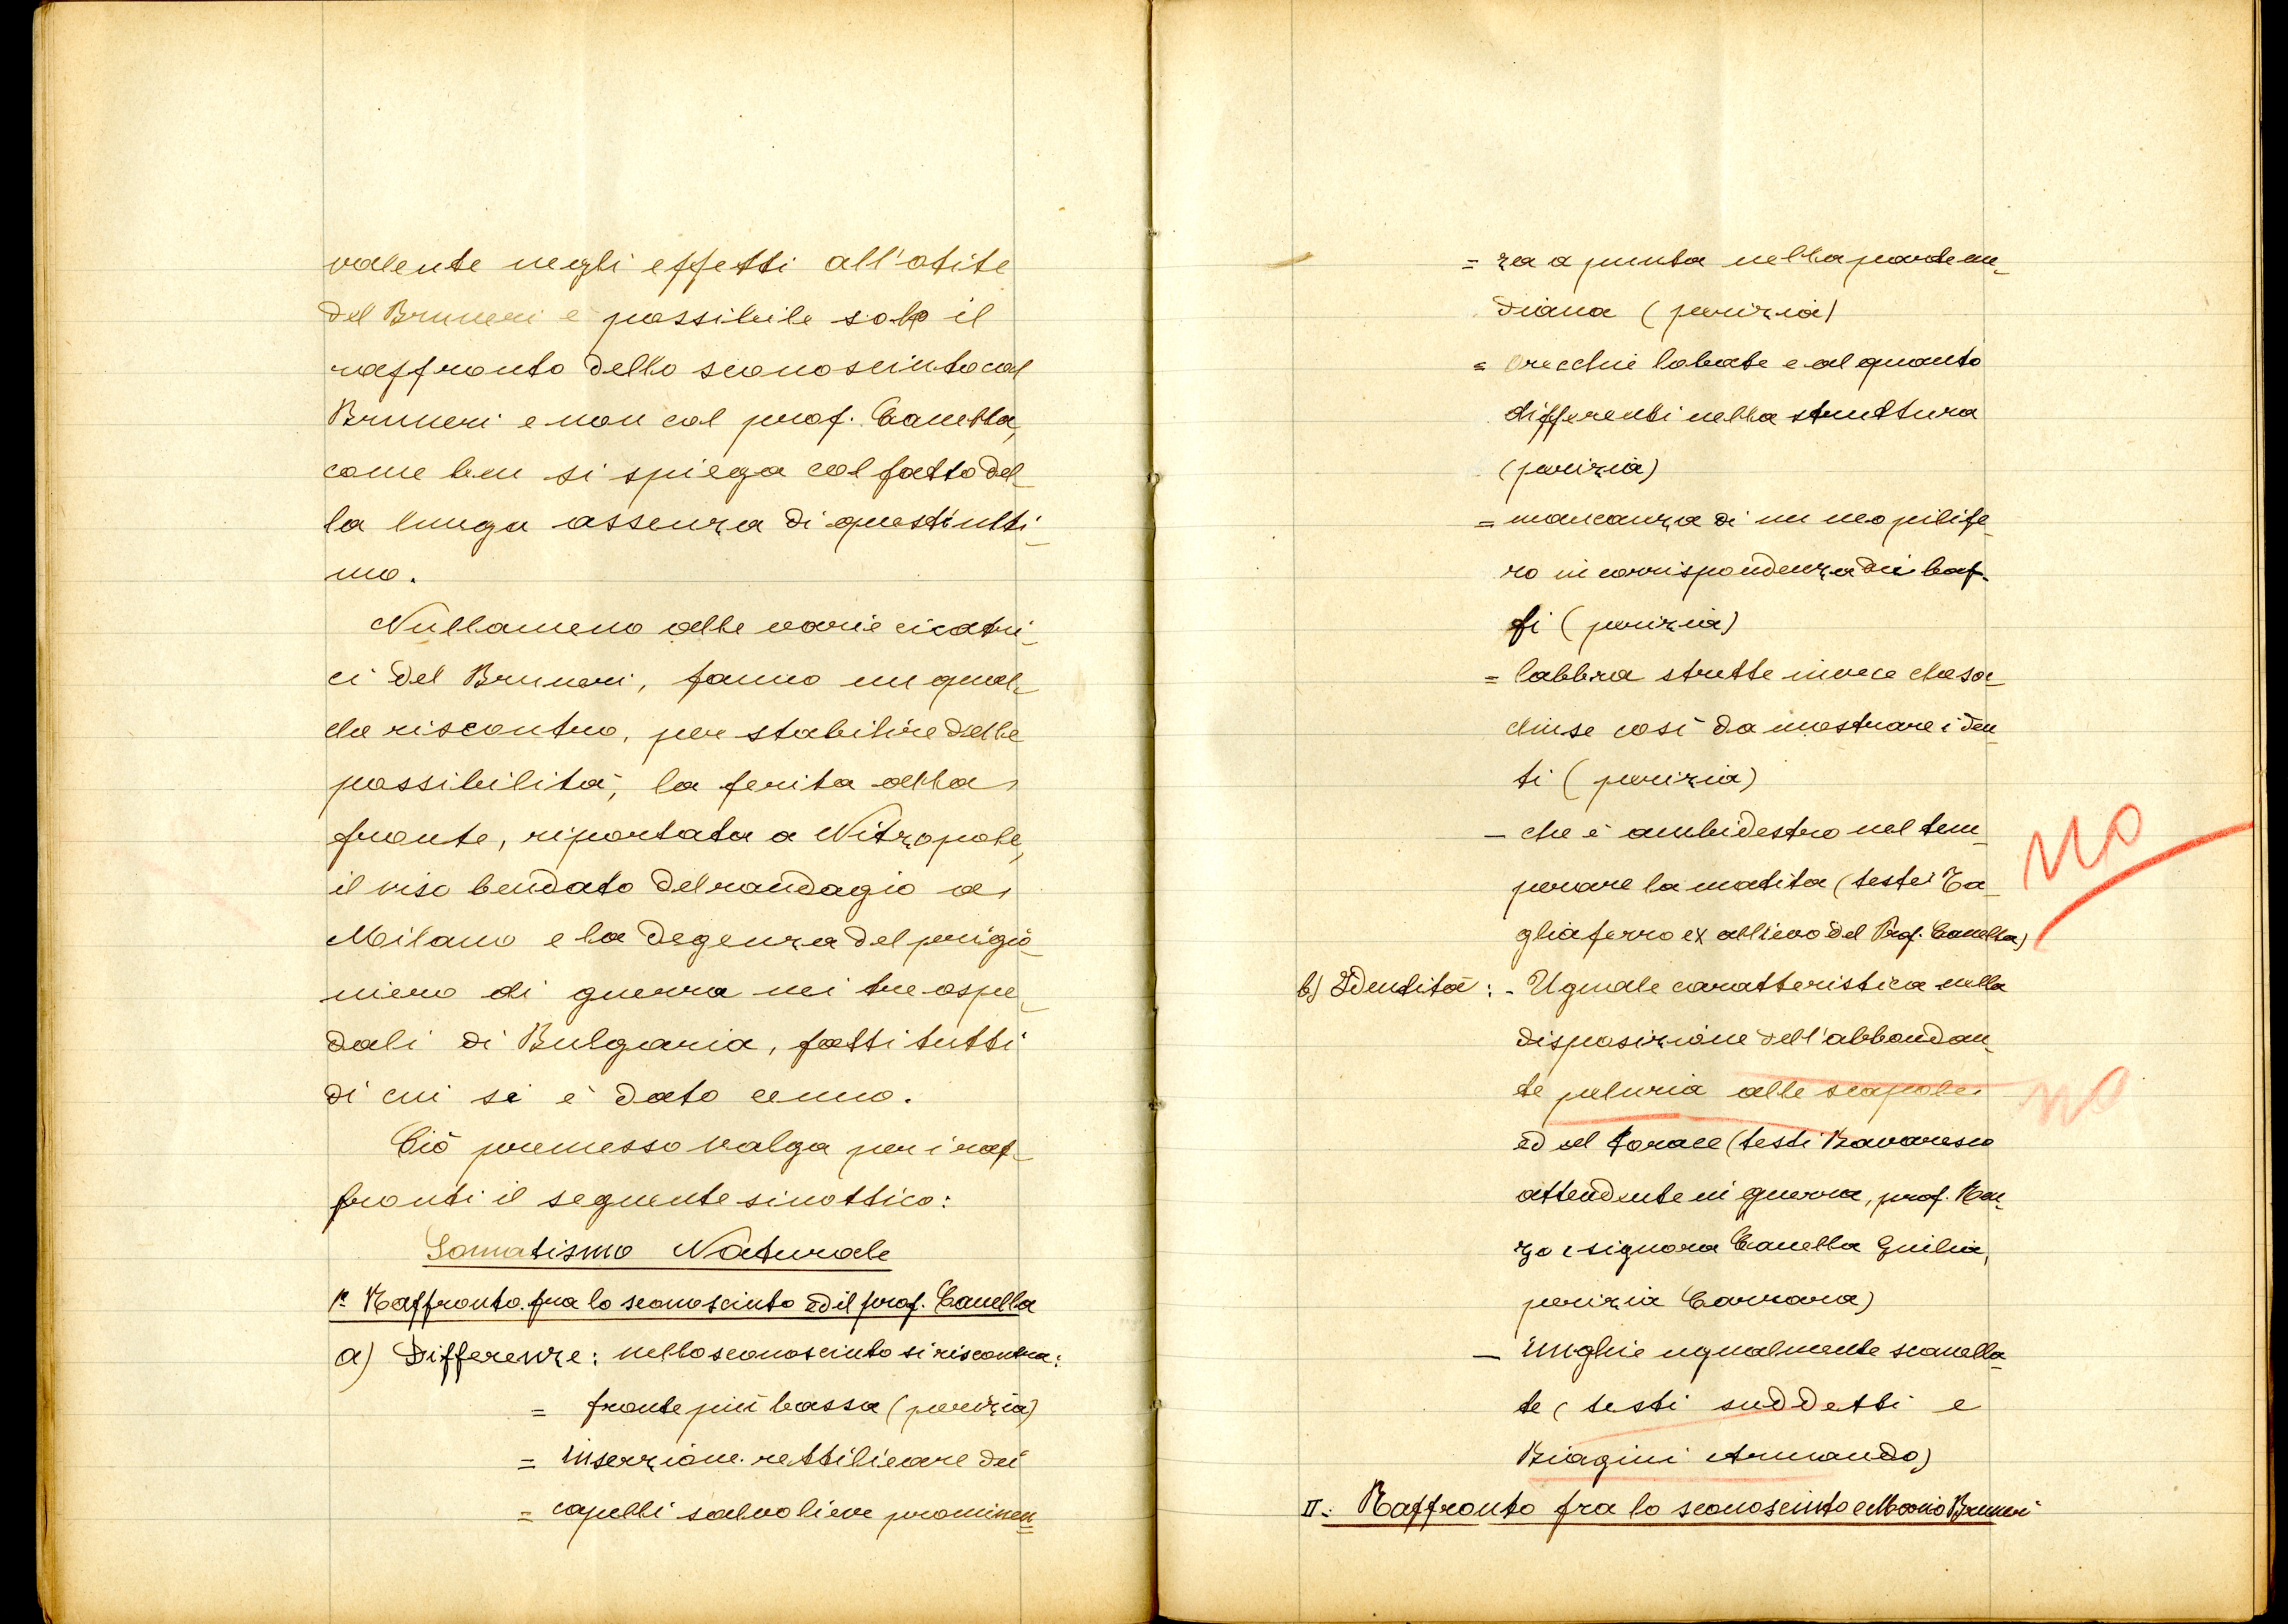 valente negli effetti all'otite
del Bruneri è possibile solo il
raffronto dello sconosciuto col
Bruneri e non col prof. Canella,
come ben si spiega col fatto del-
la lunga assenza di quest'ulti-
mo.
Nullameno alle varie cicatri-
ci del Bruneri, fanno un qual-
che riscontro, per stabilire delle
possibilità, la ferita alla
fronte, riportata a Nitzopole,
il viso bendato del randagio a
Milano e la degenza del prigio-
niero di guerra nei tre ospe-
dali di Bulgaria, fatti tutti
di cui si è dato cenno.
Ciò premesso valga per i raf-
fronti il seguente sinottico:
Somatismo Naturale
1° Raffronto fra lo sconosciuto ed il prof. Canella
a) Differenze: nello sconosciuto si riscontra:
= fronte più bassa (perizia)
= inserzione rettilineare dei
= capelli salvo lieve prominen-
= za a punta nella parte me-
diana (perizia)
= orecchie lobate e alquanto
differenti nella struttura
(perizia)
= mancanza di un neo pilife-
ro in corrispondenza dei baf-
fi (perizia)
= labbra strette invece che soc-
chiuse così da mostrare i den-
ti (perizia)
- che è ambidestro nel tem-
perare la matita (teste Ta-
gliaferro ex allievo del Prof. Canella)
NO
b) Identità: - Uguale caratteristica nella
disposizione dell'abbondan-
te peluria alle scapole
NO
ed al torace (testi Bavaresco
attendente in guerra, prof. Ran-
zo e signora Canella Giulia,
perizia Carrara)
- Unghie ugualmente scanella-
te (testi suddetti e
Biagini Armando)
II: Raffronto fra lo sconosciuto e Mario Bruneri